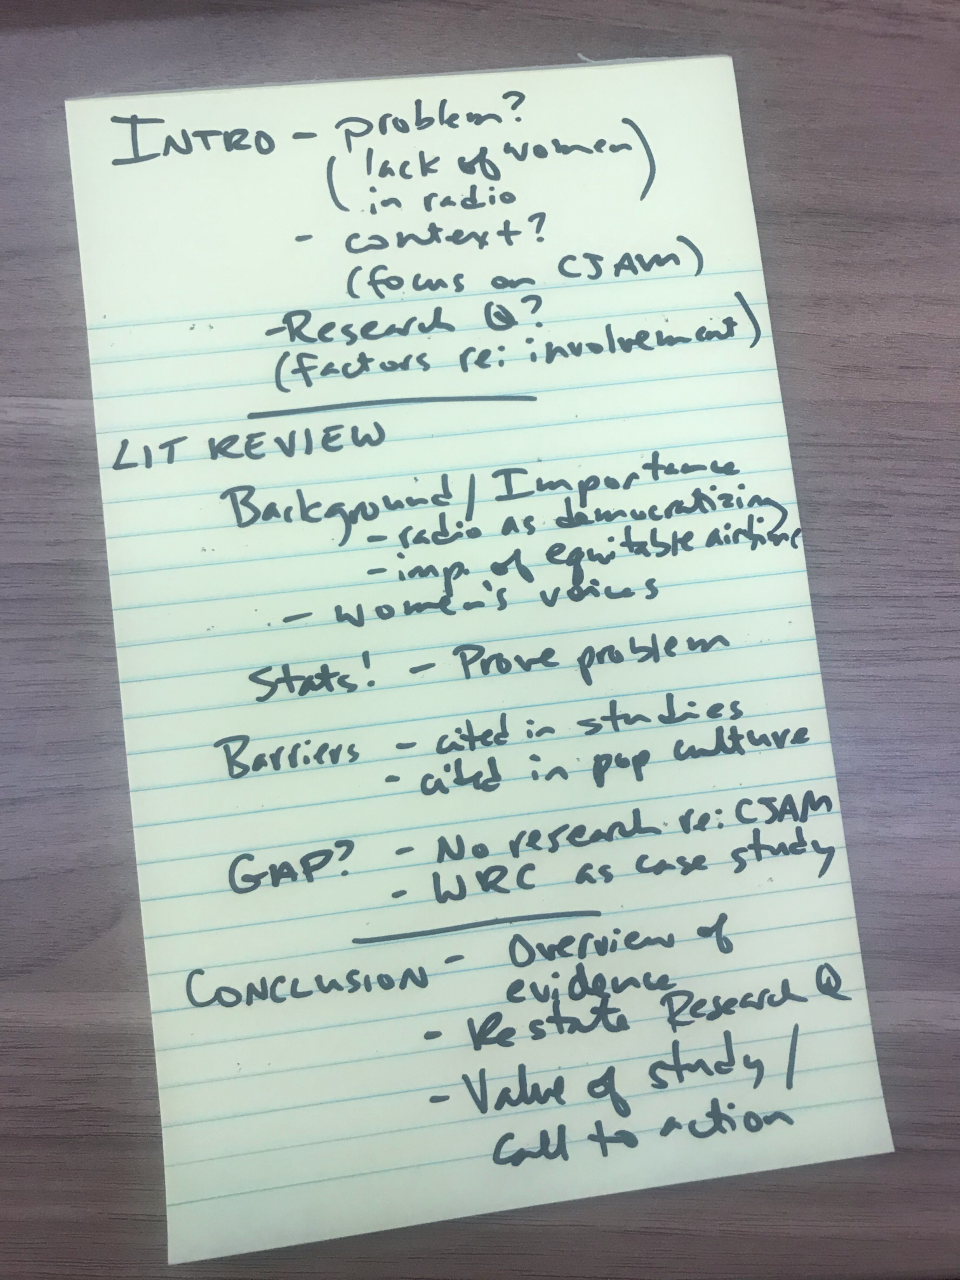 INTRO - problem?
(lack of women
in radio)
- context?
(focus on CJAM)
- Research Q?
(factors re: involvement)
LIT REVIEW
Background / Importance
- radio as democratizing
- imp. of equitable airtime
- women's voices
Stats! - Prove problem
Barriers - cited in studies
- cited in pop culture
GAP? - No research re: CJAM
- WRC as case study
CONCLUSION - Overview of
evidence
- Restate Research Q
- Value of study /
Call to action